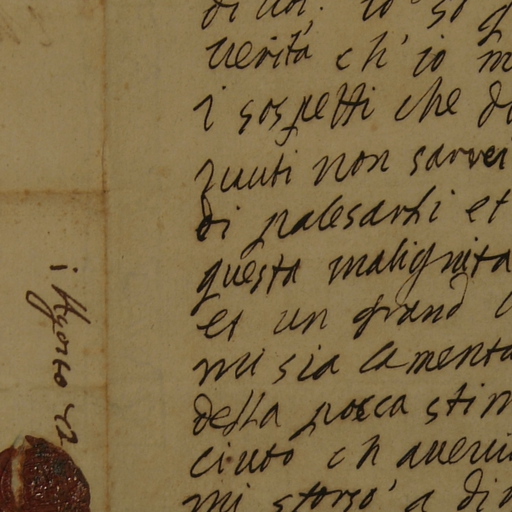 di voi. io so
verità ch'io m
i sospetti che d
zunti non sarrei
di palesarli et
questa malignita
et un grand
mi sia lamenta
della pocca stim
ciuto ch averi
mi sforzo a di
i Agosto 42